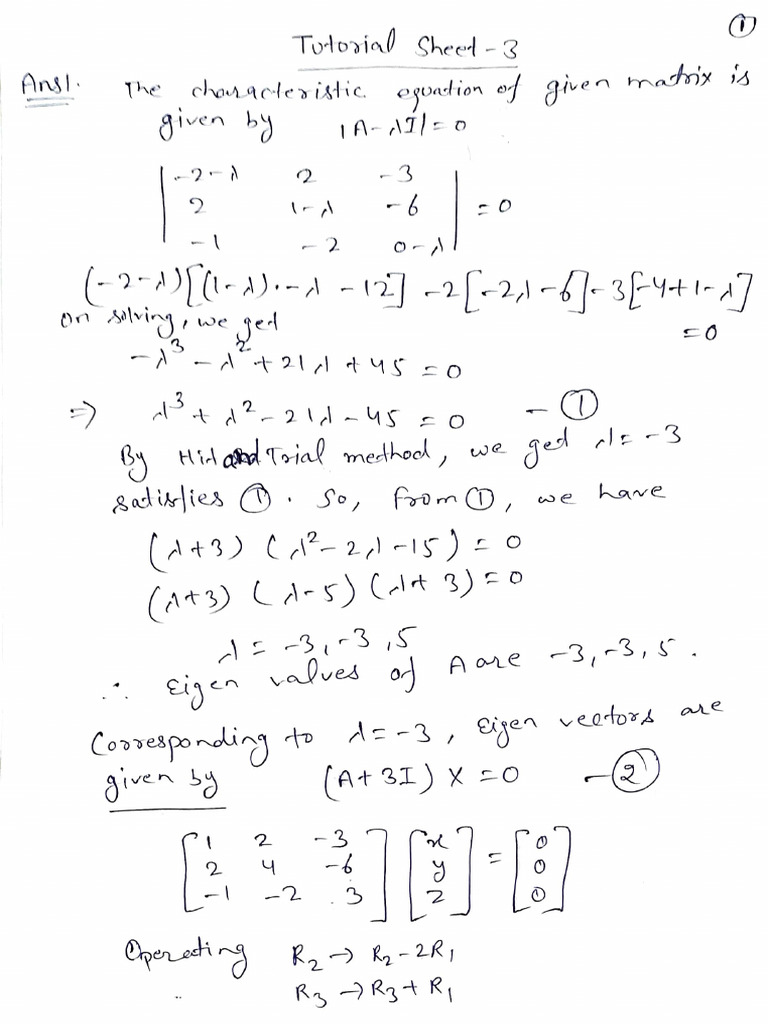 ①
Tutorial Sheet-3
Ans1. The characteristic equation of given matrix is
given by |A-λI|=0
|-2-λ 2 -3|
|2 1-λ -6| =0
|-1 -2 0-λ|
(-2-λ)[(1-λ).-λ -12] -2[-2λ-6]-3[-4+1-λ]
=0
on solving, we get
-λ³-λ²+21λ+45=0
⇒ λ³+λ²-21λ-45=0 -①
By Hit and Trial method, we get λ=-3
satisfies ①. So, from ①, we have
(λ+3) (λ²-2λ-15)=0
(λ+3) (λ-5) (λ+3)=0
λ=-3,-3,5
∴ Eigen values of A are -3,-3,5.
Corresponding to λ=-3, Eigen vectors are
given by (A+3I) X=0 -②
[1 2 -3] [x] [0]
[2 4 -6] [y] = [0]
[-1 -2 3] [z] [0]
Operating R₂→R₂-2R₁
R₃→R₃+R₁